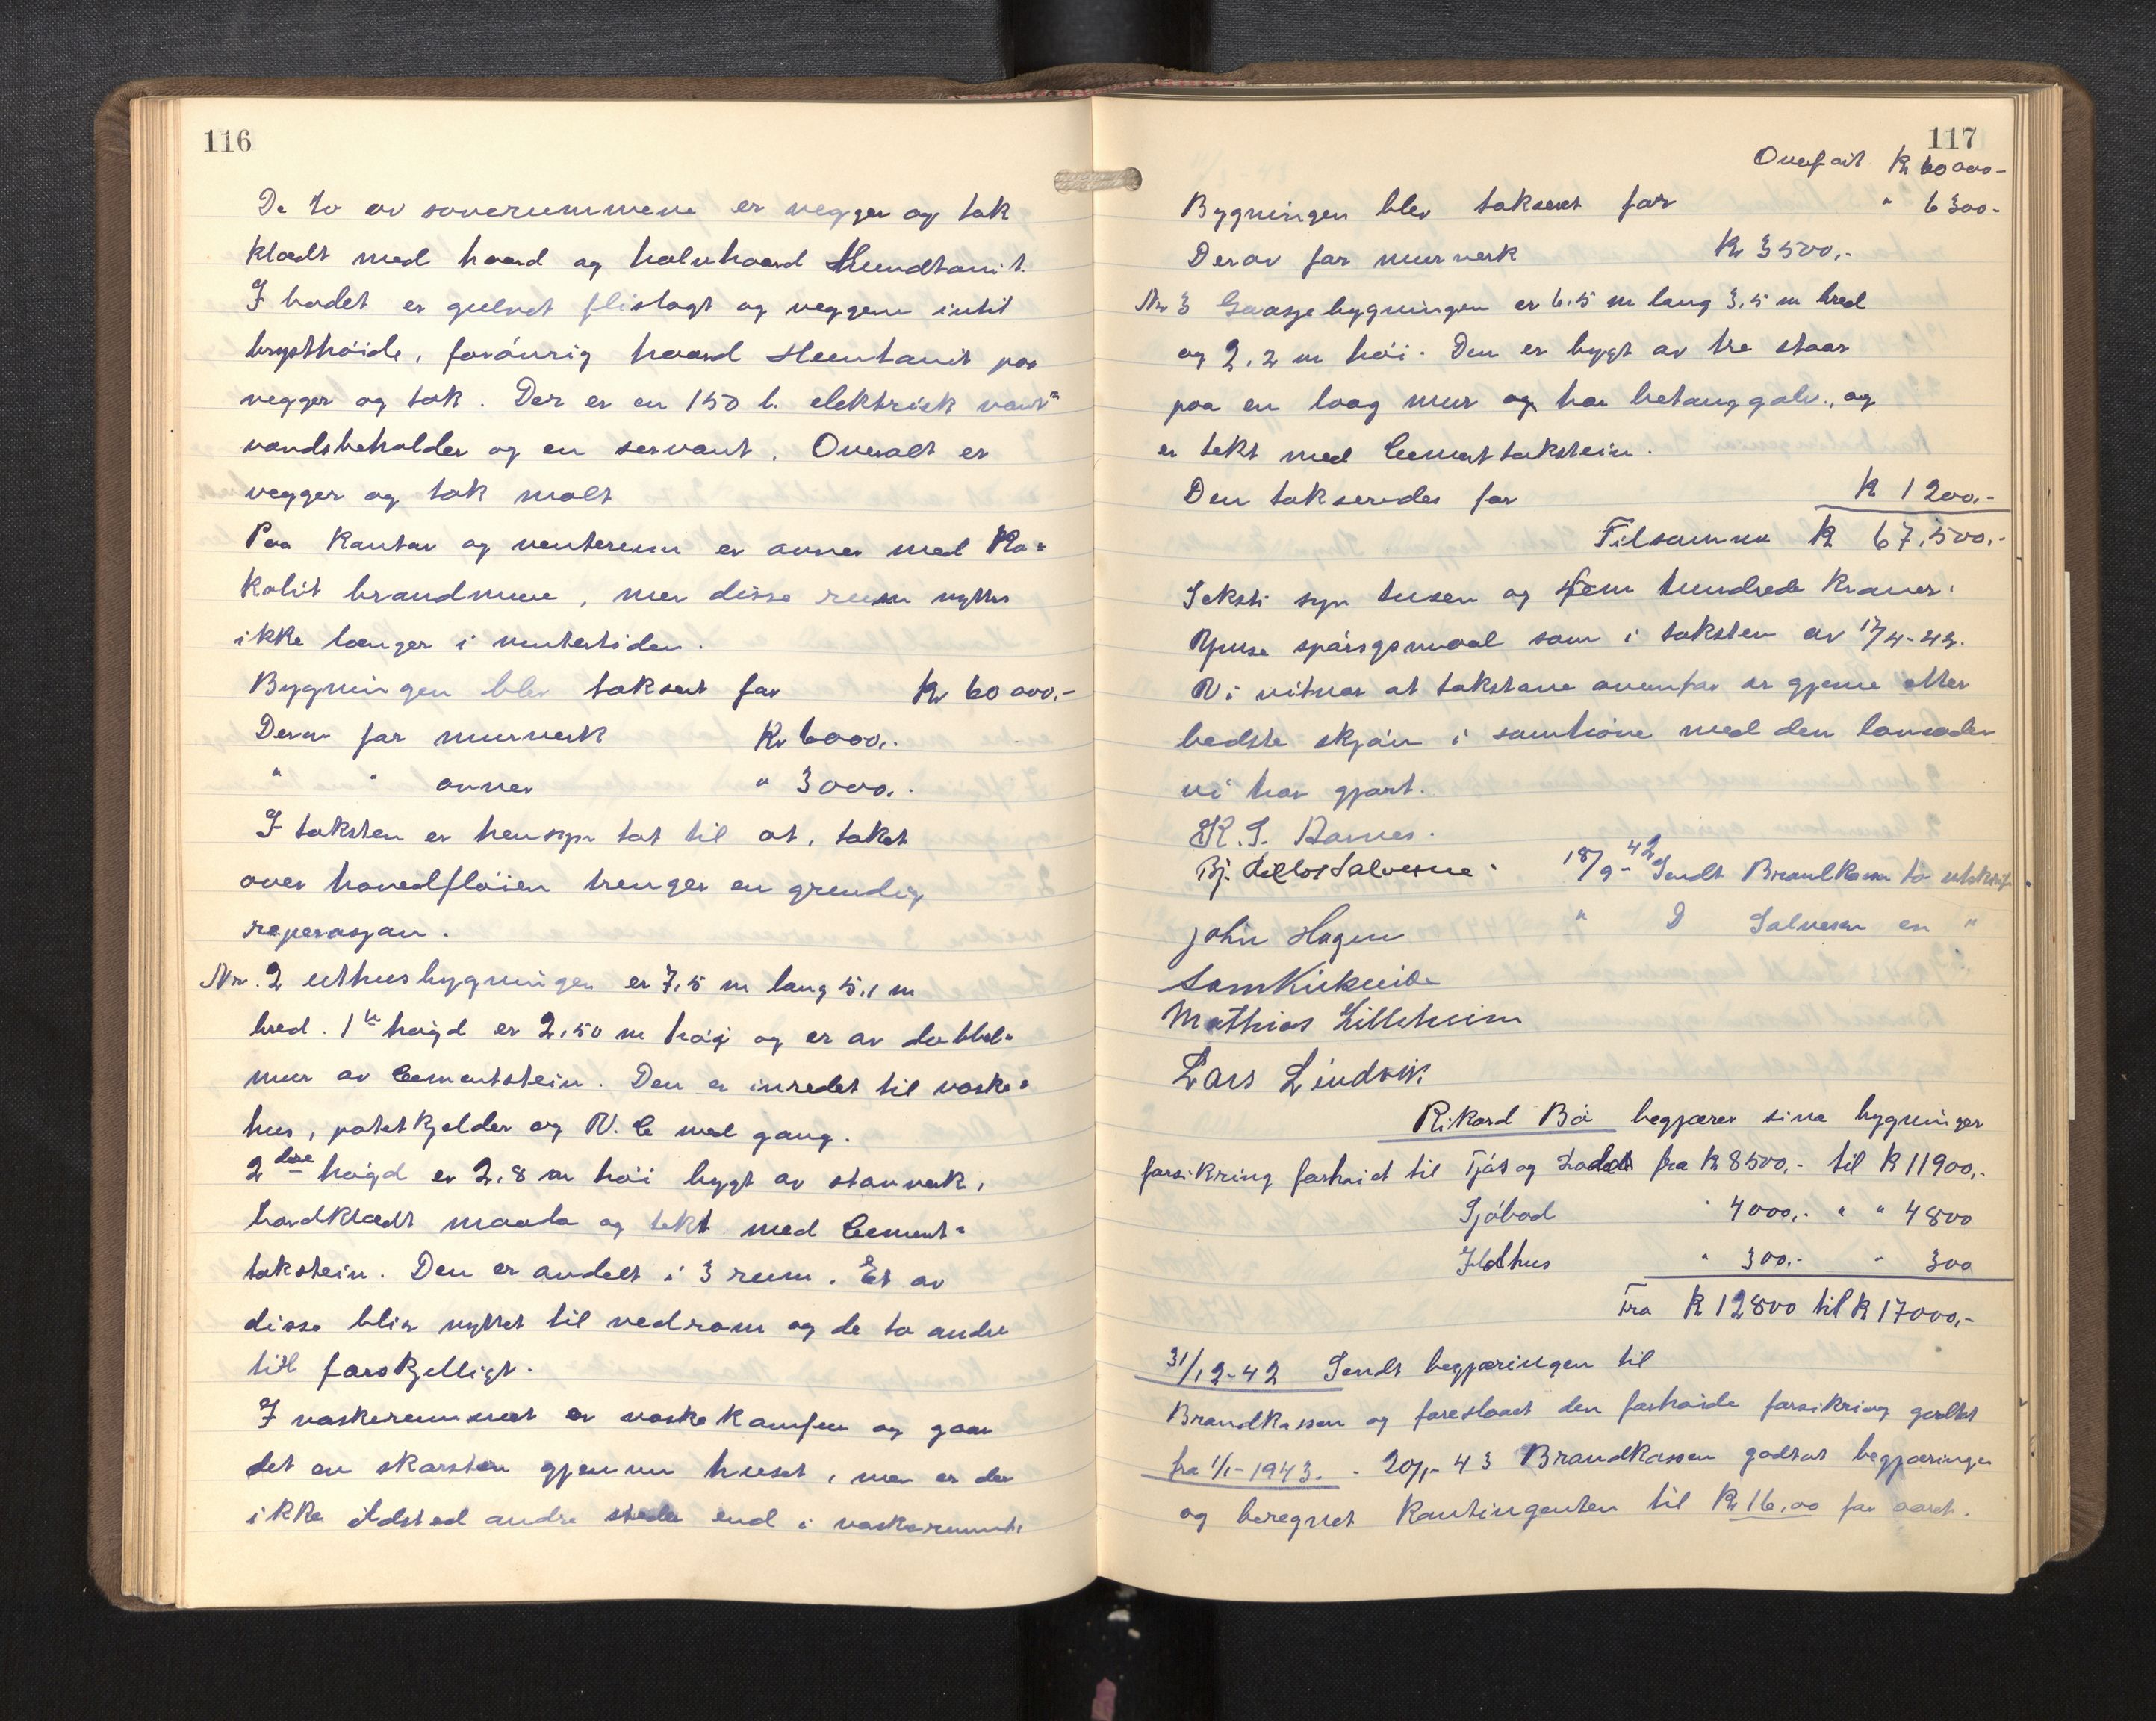 116
De to av soverummene er vegger og tak
klædt med haard og halvhaard Huntanit.
I badet er gulvet flislagt og veggene intil
brysthøide, forøvrig haard Huntanit paa
vegger og tak. Der er en 150 l. elektrisk varm=
vandsbeholder og en servant. Overalt er
vegger og tak malt
Paa Kontor og venterum er ovner med Ko=
kolit brandmure, men disse rum nyttes
ikke længer i ventertiden.
Bygningen blev taksert for Kr 60 000.-
Derav for murverk Kr 6000.-
" " ovner " 3000.-
I taksten er hensyn tat til at, taket
over hovedfløien trenger en grundig
reperasjon.
Nr. 2 uthusbygningen er 7,5 m lang 5,1 m
bred. 1ste høgd er 2,50 m høg og er av dobbel=
mur av Cementstein. Den er inredet til vaske=
hus, potetkjelder og W.C med gang.
2dre høgd er 2,8 m høi bygt av stavverk,
bordklædt maada og tekt med Cement=
takstein. Den er andelt i 3 rum. Et av
disse blir nyttet til vedrom og de to andre
till forskjelligt.
I vaskerummet er vaskekomfur og gaar
det en skorsten gjennem huset, men er der
ikke ildsted andre steder end i vaskerummet.
117
Overført Kr 60 000-
Bygningen blev taksert for " 6 300-
Derav for murverk Kr 3500,-
Nr 3 Gaasjebygningen er 6,5 m lang 3,5 m bred
og 2,2 m høi. Den er bygt av tre staar
paa en laag mur og har betonggolv, og
er tekt med Cementtakstein.
Den takseredes for Kr 1200,-
Tilsammen Kr 67,500,-
Seksti syv tusen og fem hundrede Kroner.
Ymse spørsgsmaal som i taksten av 17/4-42.
Vi vitnar at takstane ovenfor er gjerne etter
bedste skjøn i samhøve med den lovnaden
vi har gjort.
K. S. Aarnes.
Bj. Salvesen 18/9-42 Sendt Brandkassen to utskrift
John Hagen " D Salvesen en "
Mathias Lilleheim
Lars Lindvik
Rikard Bø begjærer sine bygninger
forsikring forhøiet til Fjøs og Lade fra Kr 8500,- til Kr 11900,-
Sjøbod " 4000,- " " 4800
Ildhus " 300,- " 300
Fra Kr 12800 til Kr 17000,-
31/12-42 Sendt begjæringen til
Brandkassen og foreslaaet den forhøide forsikring gjeldet
fra 1/1-1943. - 20/1-43 Brandkassen godtat begjæringen
og beregnet Kontingenten til Kr 16,00 for aaret.